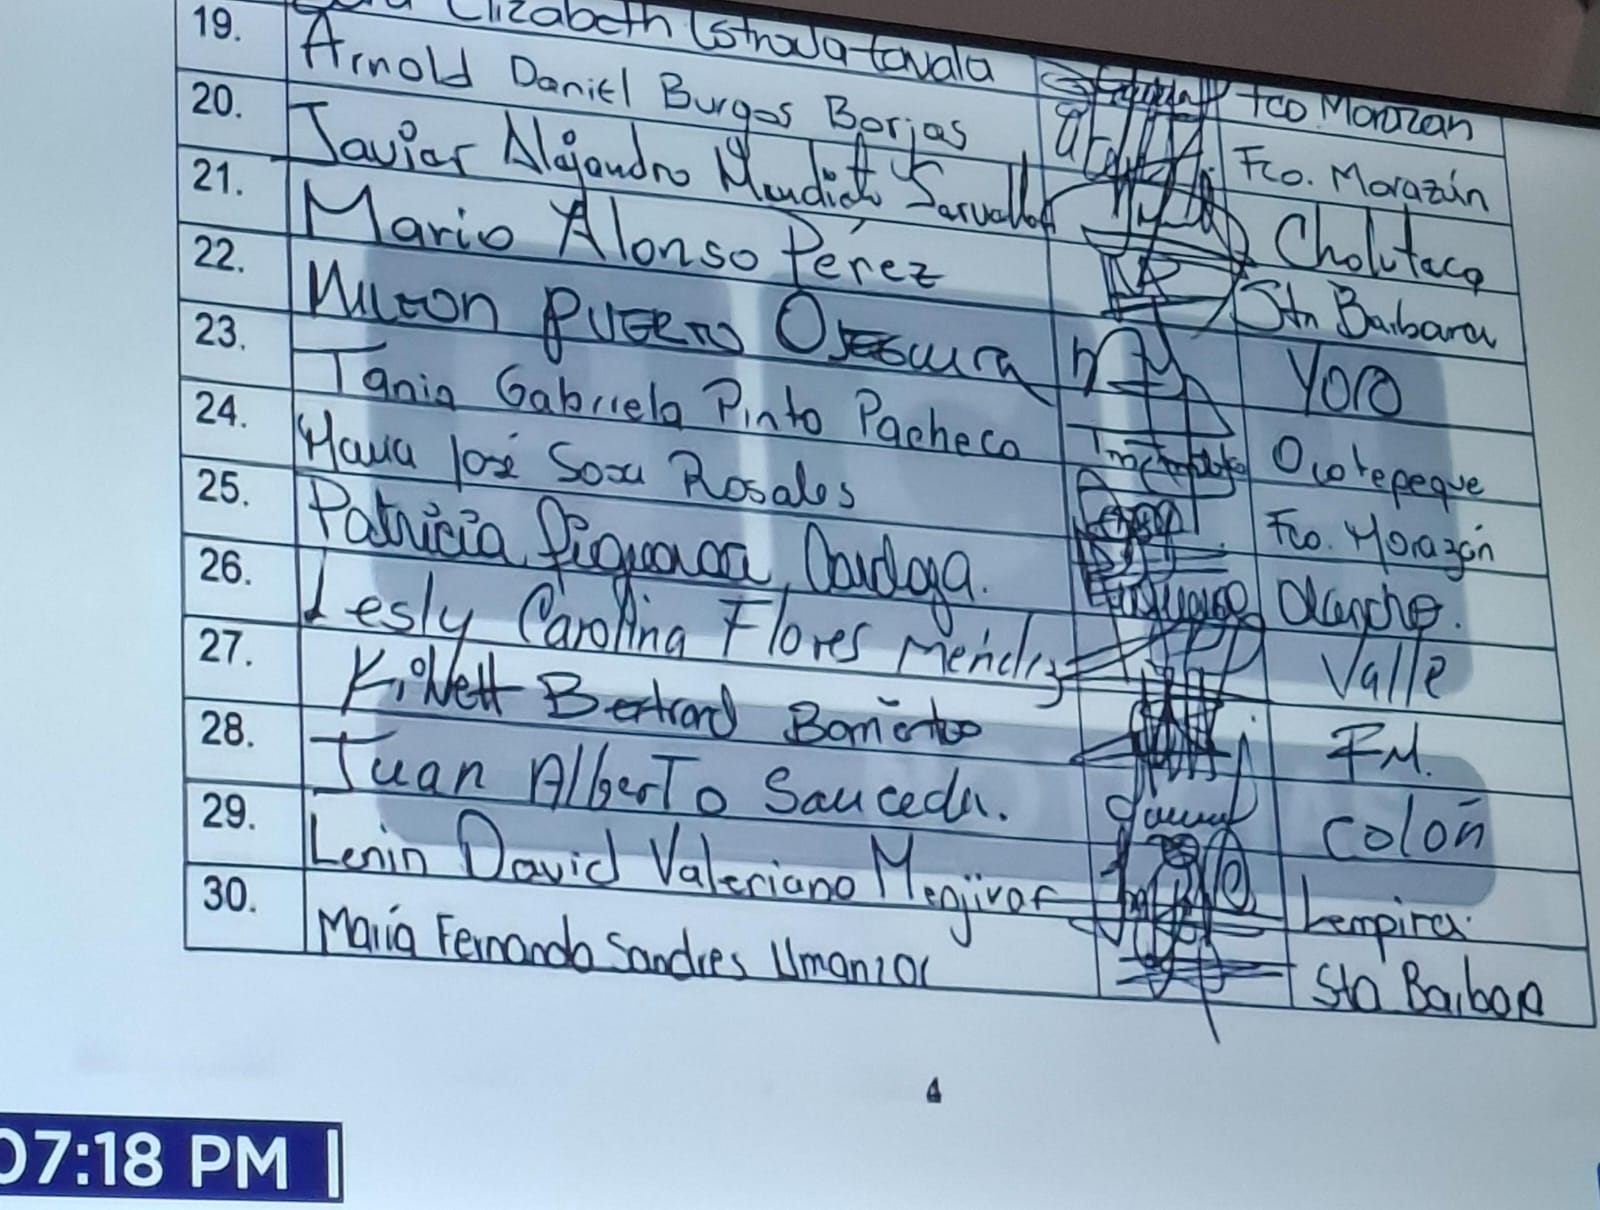 Elizabeth Estrada Zavala Fco. Morazan
19. Arnold Daniel Burgos Borjas Fco. Morazán
20. Javiar Alejandro Cholutaca
21. Mario Alonso Pérez Sta Barbara
22. Milton Puerto Oseguera Yoro
23. Tania Gabriela Pinto Pacheco Ocotepeque
24. Maria José Sosa Rosales Fco. Morazán
25. Patricia Figueroa Cardoza. Olancho.
26. Lesly Carolina Flores Méndez Valle
27. Kivett Bertrand Barrientos F.M.
28. Juan Alberto Sauceda. Colón
29. Lenin David Valeriano Menjivar Lempira.
30. María Fernanda Sandres Umanzor Sta Barbara
4
07:18 PM